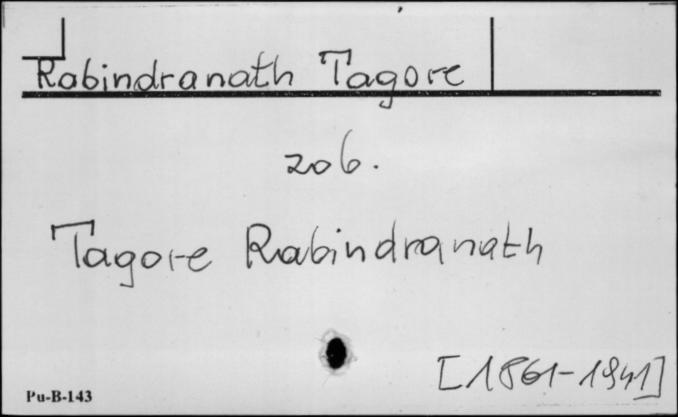 Rabindranath Tagore
206.
Tagore Rabindranath
[1861-1941]
Pu-B-143